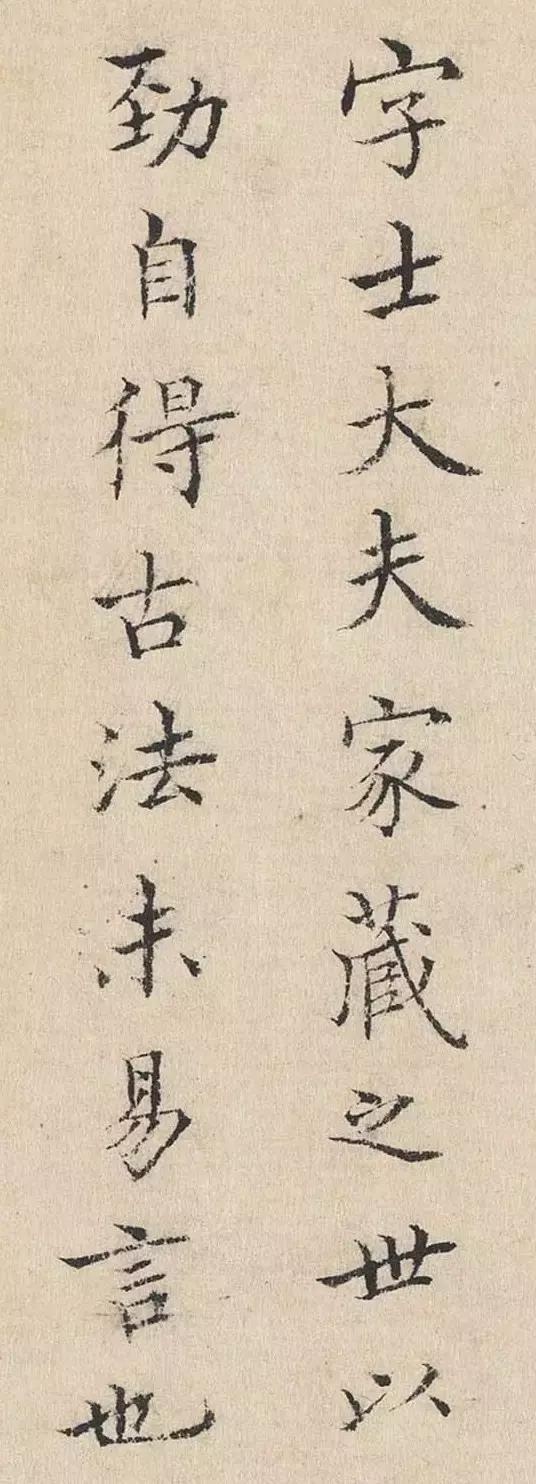 字士大夫家藏之世以
勁自得古法未易言也